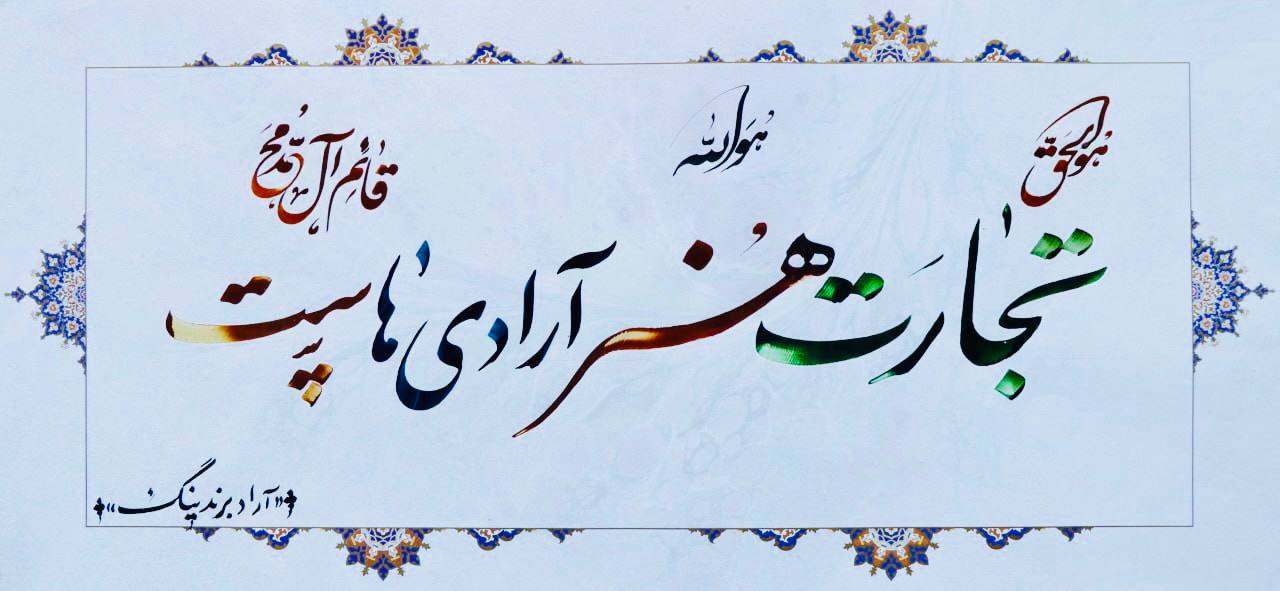 هُوالحَقّ
هُوَالله
قائم آل محَمّد
تجارَت هُنر آرادی هاست
«آراد برندینگ»